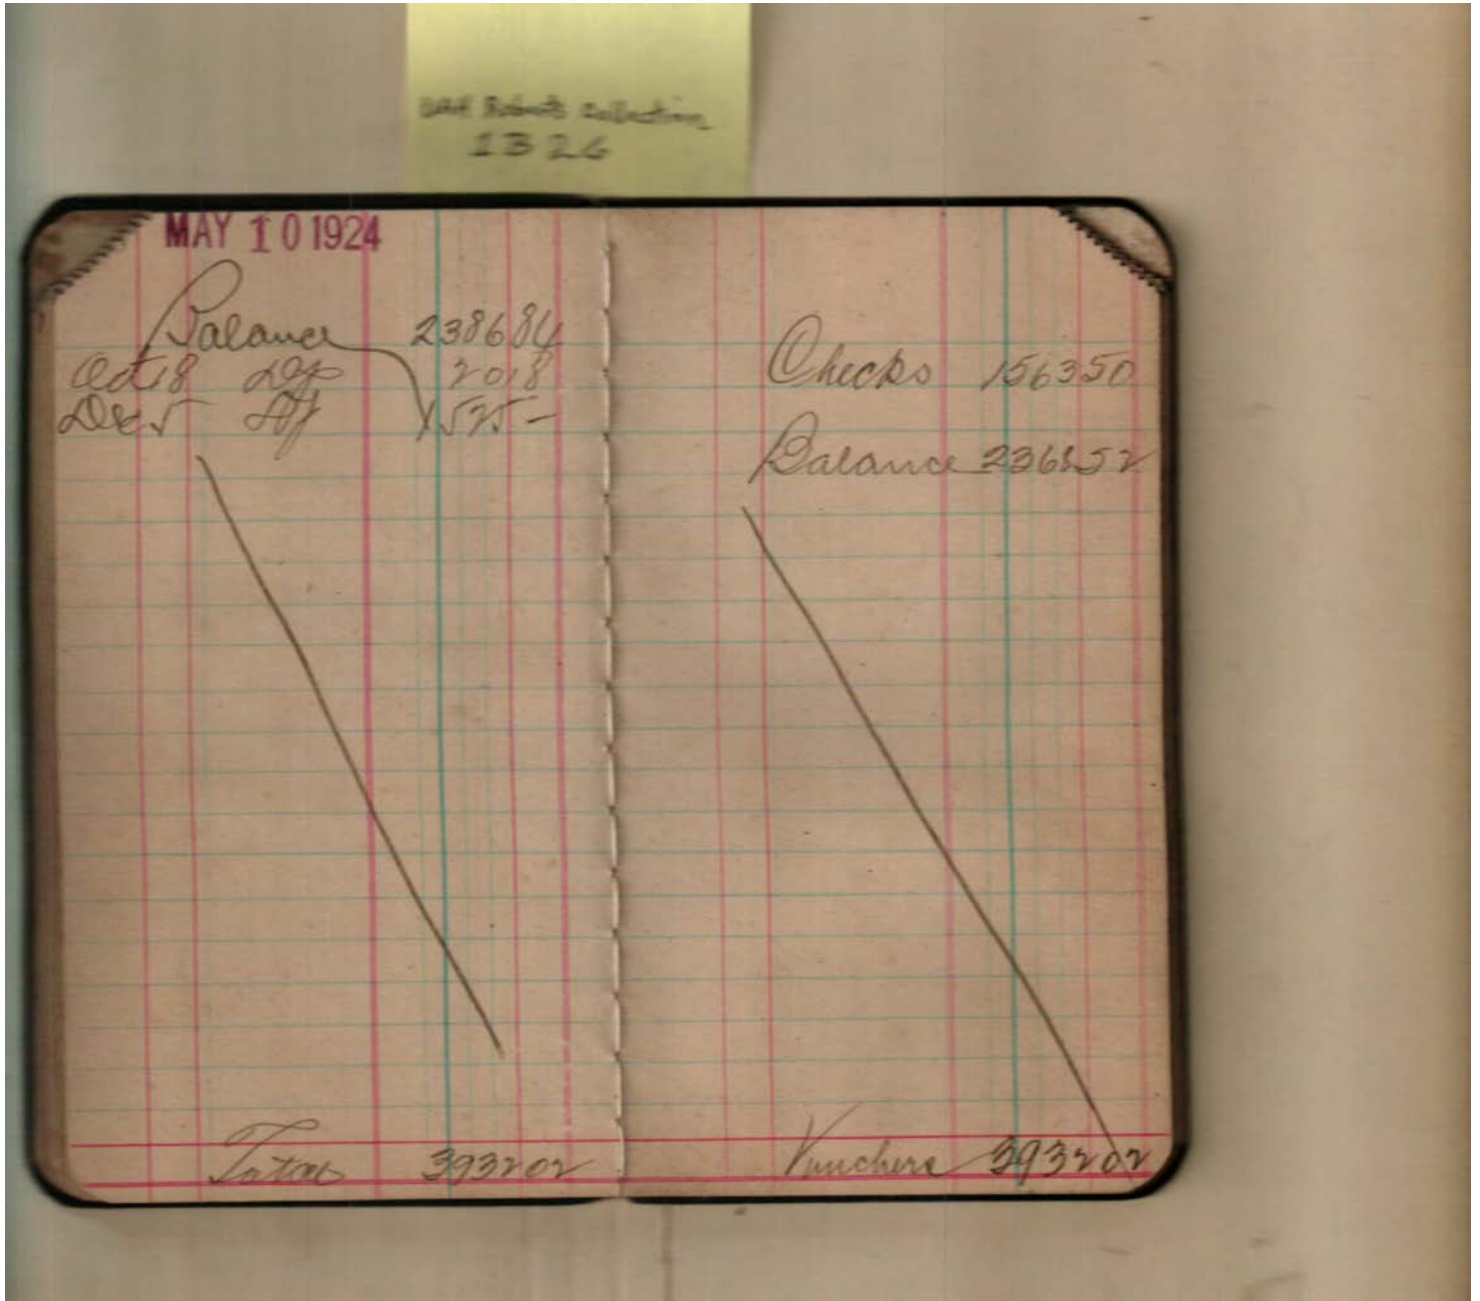 UAH Roberts Collection
1326
MAY 10 1924
Balance 238684
Oct 18 Dep 2018
Dec 5 Df 1525 –
Total 393202
Checks 156350
Balance 236852
Vouchers 393202